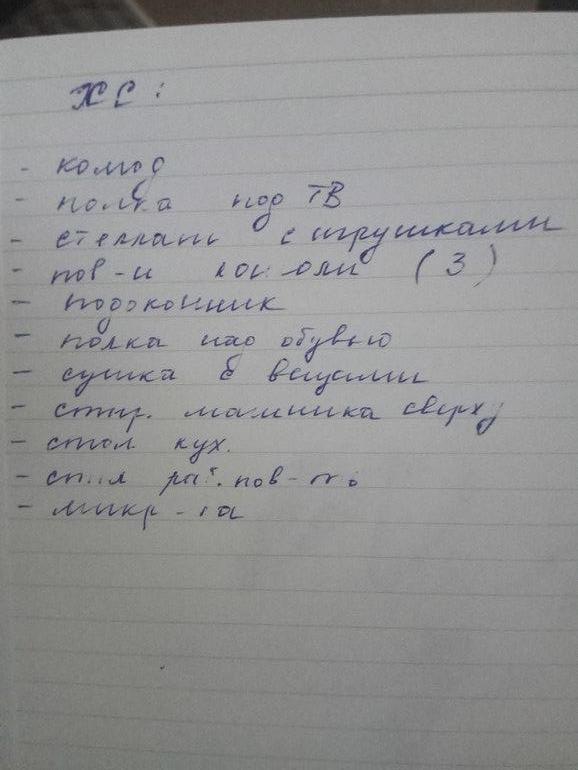 ХС:
- комод
- полка под ТВ
- стеллаж с игрушками
- пов-и консоли (3)
- подоконник
- полка над обувью
- сушка с вещами
- стир. машинка сверху
- стол кух.
- стол раб. пов-ть
- микр-ка